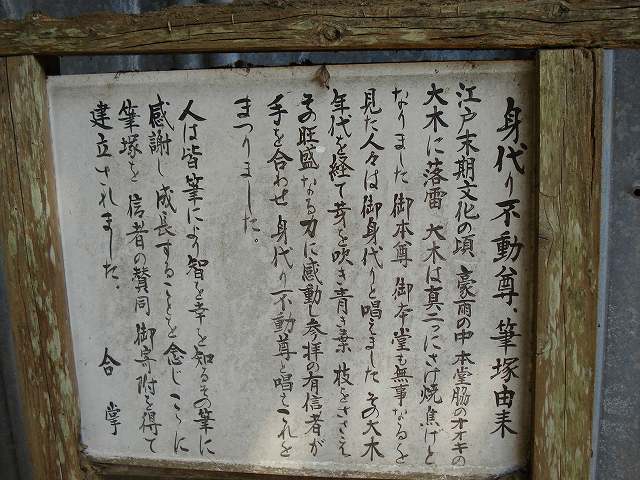 身代り不動尊、筆塚由来
江戸末期文化の頃 豪雨の中 本堂脇のオオキの
大木に落雷 大木は真二つにさけ焼焦げと
なりました 御本尊 御本堂も無事なるを
見た人々は御身代りと唱えました その大木
年代を経て芽を吹き青き葉 枝をささえ
その旺盛なる力に感動し参拝の有信者が
手を合わせ 身代り不動尊と唱えこれを
まつりました。
人は皆筆により智を幸を知るその筆に
感謝し成長することを念じここに
筆塚を 信者の賛同 御寄附を得て
建立されました。 合掌